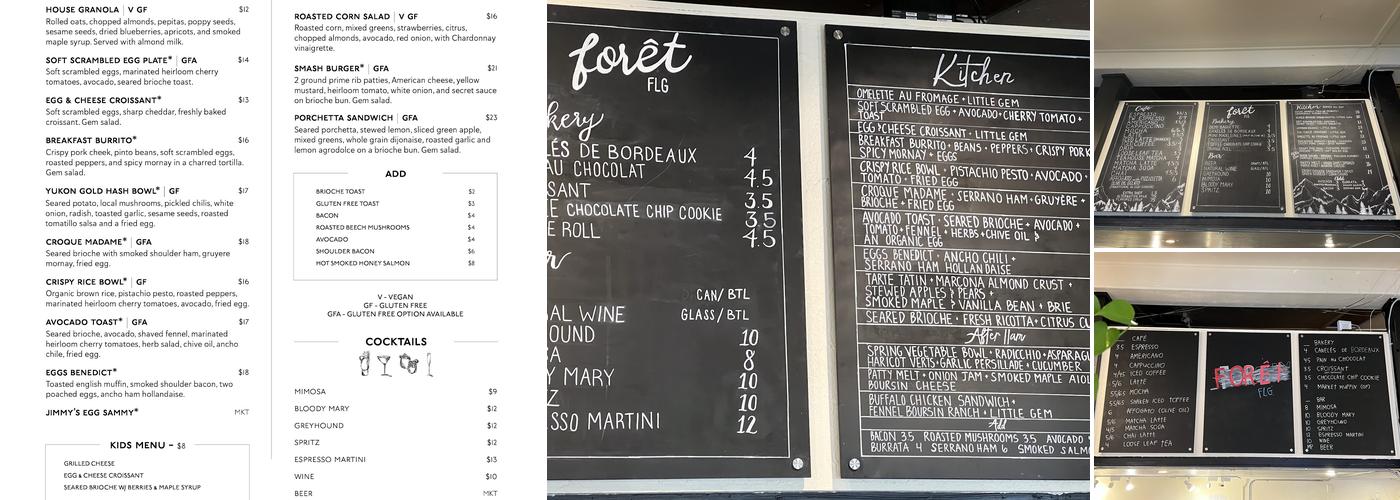 HOUSE GRANOLA | V GF $12
Rolled oats, chopped almonds, pepitas, poppy seeds,
sesame seeds, dried blueberries, apricots, and smoked
maple syrup. Served with almond milk.
SOFT SCRAMBLED EGG PLATE* | GFA $14
Soft scrambled eggs, marinated heirloom cherry
tomatoes, avocado, seared brioche toast.
EGG & CHEESE CROISSANT* $13
Soft scrambled eggs, sharp cheddar, freshly baked
croissant. Gem salad.
BREAKFAST BURRITO* $16
Crispy pork cheek, pinto beans, soft scrambled eggs,
roasted peppers, and spicy mornay in a charred tortilla.
Gem salad.
YUKON GOLD HASH BOWL* | GF $17
Seared potato, local mushrooms, pickled chilis, white
onion, radish, toasted garlic, sesame seeds, roasted
tomatillo salsa and a fried egg.
CROQUE MADAME* | GFA $18
Seared brioche with smoked shoulder ham, gruyere
mornay, fried egg.
CRISPY RICE BOWL* | GF $16
Organic brown rice, pistachio pesto, roasted peppers,
marinated heirloom cherry tomatoes, avocado, fried egg.
AVOCADO TOAST* | GFA $17
Seared brioche, avocado, shaved fennel, marinated
heirloom cherry tomatoes, herb salad, chive oil, ancho
chile, fried egg.
EGGS BENEDICT* $18
Toasted english muffin, smoked shoulder bacon, two
poached eggs, ancho ham hollandaise.
JIMMY'S EGG SAMMY* MKT
KIDS MENU - $8
GRILLED CHEESE
EGG & CHEESE CROISSANT
SEARED BRIOCHE W/ BERRIES & MAPLE SYRUP
ROASTED CORN SALAD | V GF $16
Roasted corn, mixed greens, strawberries, citrus,
chopped almonds, avocado, red onion, with Chardonnay
vinaigrette.
SMASH BURGER* | GFA $21
2 ground prime rib patties, American cheese, yellow
mustard, heirloom tomato, white onion, and secret sauce
on brioche bun. Gem salad.
PORCHETTA SANDWICH | GFA $23
Seared porchetta, stewed lemon, sliced green apple,
mixed greens, whole grain dijonaise, roasted garlic and
lemon agrodolce on a brioche bun. Gem salad.
ADD
BRIOCHE TOAST $2
GLUTEN FREE TOAST $3
BACON $4
ROASTED BEECH MUSHROOMS $4
AVOCADO $4
SHOULDER BACON $6
HOT SMOKED HONEY SALMON $8
V - VEGAN
GF - GLUTEN FREE
GFA - GLUTEN FREE OPTION AVAILABLE
COCKTAILS
MIMOSA $9
BLOODY MARY $12
GREYHOUND $12
SPRITZ $12
ESPRESSO MARTINI $13
WINE $10
BEER MKT
forêt
FLG
kery
LÉS DE BORDEAUX 4
AU CHOCOLAT 4.5
SANT 3.5
E CHOCOLATE CHIP COOKIE 3.5
E ROLL 4.5
CAN/BTL
AL WINE GLASS/BTL
OUND 10
A 8
Y MARY 10
Z 10
SSO MARTINI 12
Kitchen
OMELETTE AU FROMAGE • LITTLE GEM
SOFT SCRAMBLED EGG • AVOCADO • CHERRY TOMATO •
TOAST
EGG & CHEESE CROISSANT • LITTLE GEM
BREAKFAST BURRITO • BEANS • PEPPERS • CRISPY PORK
SPICY MORNAY • EGGS
CRISPY RICE BOWL • PISTACHIO PESTO • AVOCADO •
TOMATO • FRIED EGG
CROQUE MADAME • SERRANO HAM • GRUYÈRE •
BRIOCHE • FRIED EGG
AVOCADO TOAST • SEARED BRIOCHE • AVOCADO •
TOMATO • FENNEL • HERBS • CHIVE OIL &
AN ORGANIC EGG
EGGS BENEDICT • ANCHO CHILI •
SERRANO HAM HOLLANDAISE
TARTE TATIN • MARCONA ALMOND CRUST •
STEWED APPLES & PEARS •
SMOKED MAPLE & VANILLA BEAN • BRIE
SEARED BRIOCHE • FRESH RICOTTA • CITRUS CU
After 11am
SPRING VEGETABLE BOWL • RADICCHIO • ASPARAG
HARICOT VERTS • GARLIC PERSILLADE • CUCUMBER
PATTY MELT • ONION JAM • SMOKED MAPLE AIOL
BOURSIN CHEESE
BUFFALO CHICKEN SANDWICH •
FENNEL BOURSIN RANCH • LITTLE GEM
Add
BACON 3.5 ROASTED MUSHROOMS 3.5 AVOCADO
BURRATA 4 SERRANO HAM 6 SMOKED SALM
Café
forêt
Bakery
Bar
MIMOSA
BLOODY MARY
SPRITZ
Kitchen
CAFÉ
3.5 ESPRESSO
4 AMERICANO
4 CAPPUCCINO
4/5 ICED COFFEE
5/6 LATTÉ
MOCHA
SHAKEN ICED TOFFEE
6 AFFOGATO (OLIVE OIL)
MATCHA LATTÉ
MATCHA SODA
CHAI LATTE
4 LOOSE LEAF TEA
FORÊT
FLG
BAKERY
4 CANELÉS DE BORDEAUX
4.5 PAIN AU CHOCOLAT
3.5 CROISSANT
3.5 CHOCOLATE CHIP COOKIE
4 MARKET MUFFIN (GF)
BAR
8 MIMOSA
10 BLOODY MARY
10 GREYHOUND
10 SPRITZ
12 ESPRESSO MARTINI
10 WINE
MP BEER